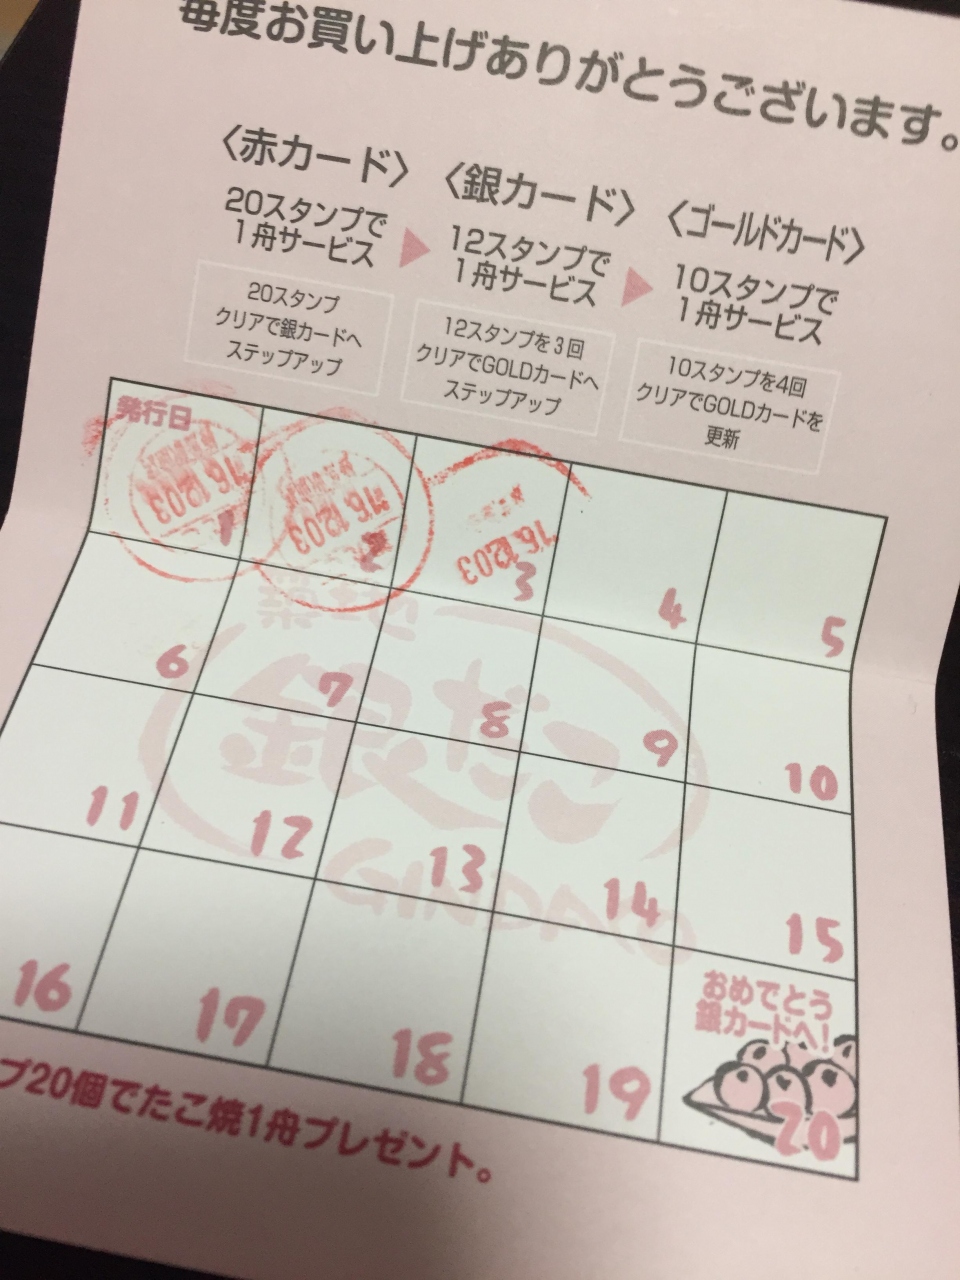 毎度お買い上げありがとうございます。
〈赤カード〉
20スタンプで
1舟サービス
20スタンプ
クリアで銀カードへ
ステップアップ
〈銀カード〉
12スタンプで
1舟サービス
12スタンプを3回
クリアでGOLDカードへ
ステップアップ
〈ゴールドカード〉
10スタンプで
1舟サービス
10スタンプを4回
クリアでGOLDカードを
更新
発行日
'16.12.03
'16.12.03
'16.12.03
1
2
3
4
5
6
7
8
9
10
築地
銀だこ
GINDACO
11
12
13
14
15
16
17
18
19
おめでとう
銀カードへ!
20
プ20個でたこ焼1舟プレゼント。